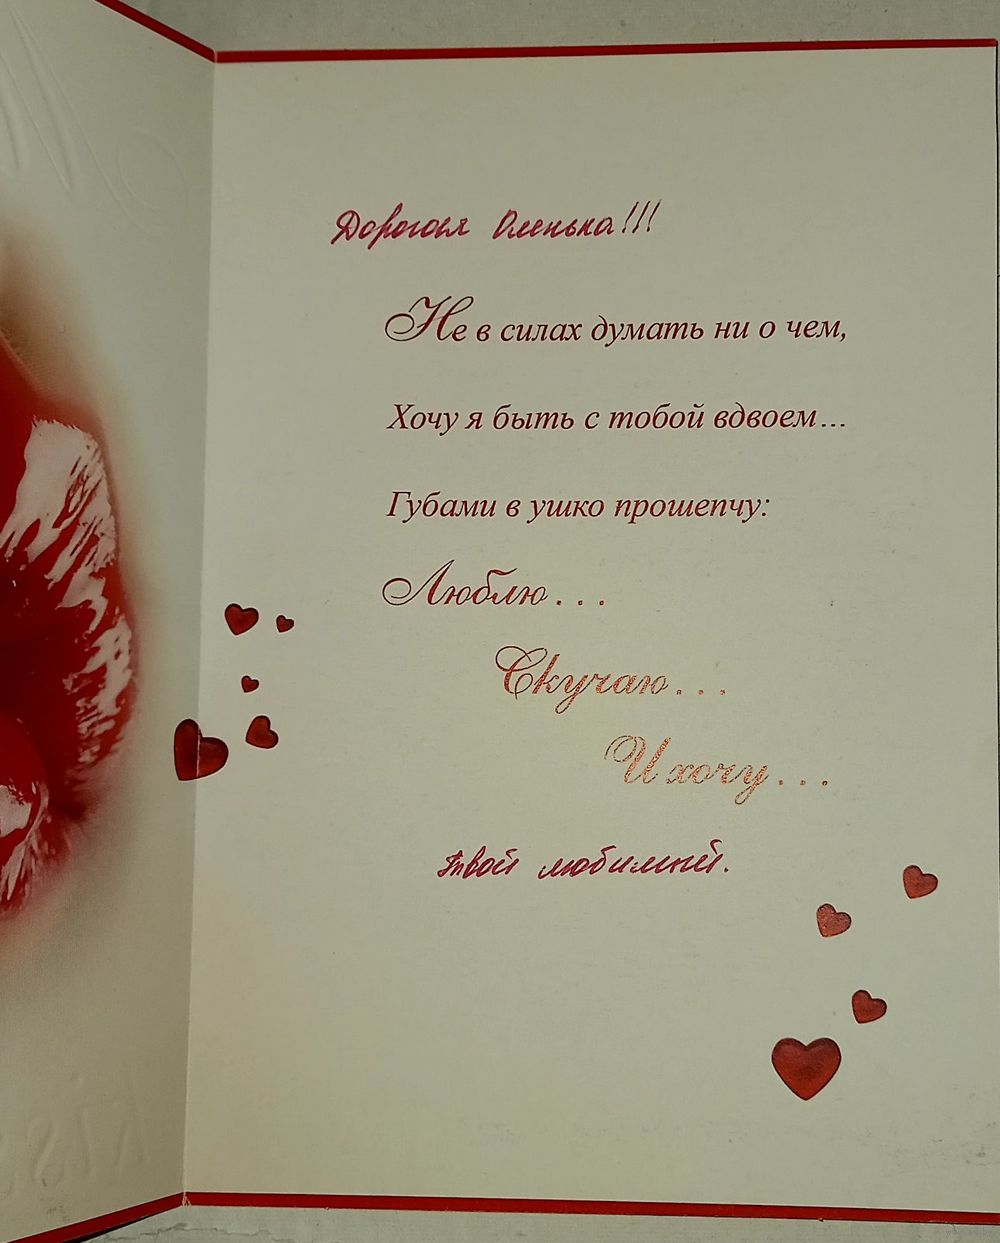 Дорогая Оленька!!!
Не в силах думать ни о чем,
Хочу я быть с тобой вдвоем...
Губами в ушко прошепчу:
Люблю...
Скучаю...
И хочу...
Твой любимый.